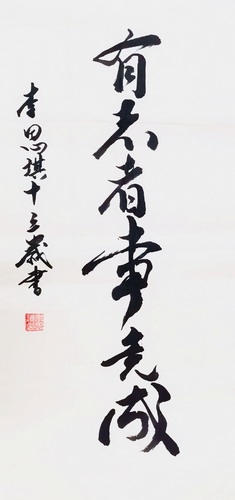 有志者事竟成
李思棋十三岁書